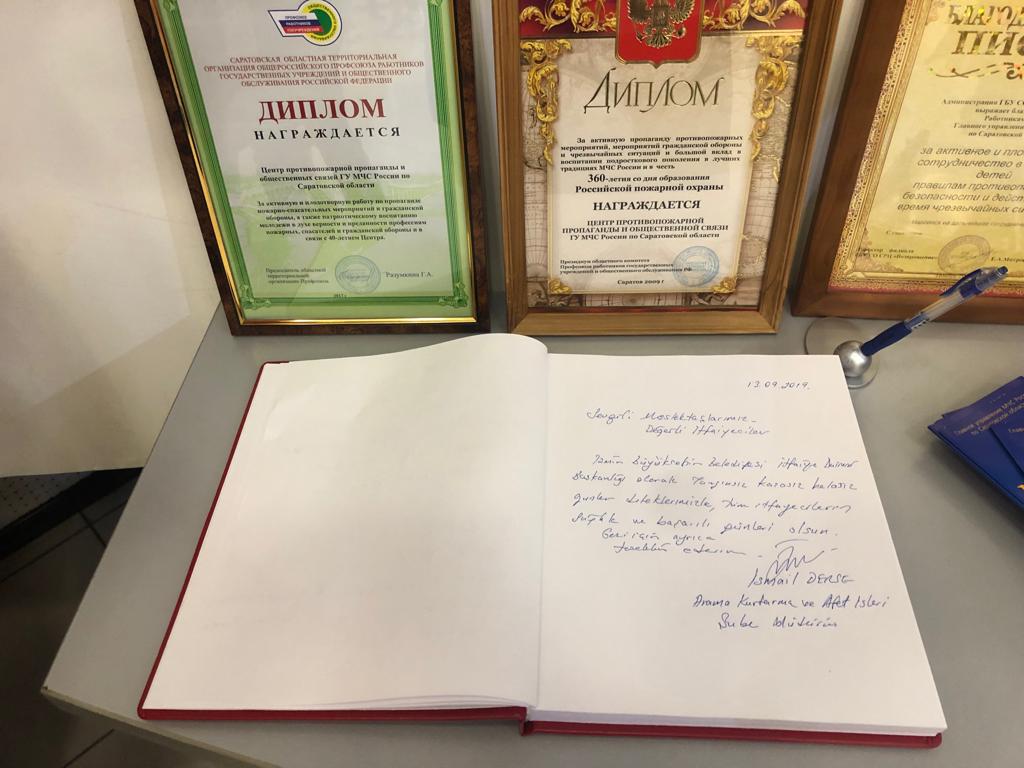 ПРОФСОЮЗ
РАБОТНИКОВ
ГОСУЧРЕЖДЕНИЙ
САРАТОВСКАЯ ОБЛАСТНАЯ ТЕРРИТОРИАЛЬНАЯ
ОРГАНИЗАЦИЯ ОБЩЕРОССИЙСКОГО ПРОФСОЮЗА РАБОТНИКОВ
ГОСУДАРСТВЕННЫХ УЧРЕЖДЕНИЙ И ОБЩЕСТВЕННОГО
ОБСЛУЖИВАНИЯ РОССИЙСКОЙ ФЕДЕРАЦИИ
ДИПЛОМ
НАГРАЖДАЕТСЯ
Центр противопожарной пропаганды и
общественных связей ГУ МЧС России по
Саратовской области
За активную и плодотворную работу по пропаганде
пожарно-спасательных мероприятий и гражданской
обороны, а также патриотическому воспитанию
молодежи в духе верности и преданности профессиям
пожарных, спасателей и гражданской обороны и в
связи с 40-летием Центра.
Председатель областной
территориальной
организации Профсоюза
Разумкина Г.А.
2017 г
ДИПЛОМ
За активную пропаганду противопожарных
мероприятий, мероприятий гражданской обороны
и чрезвычайных ситуаций и большой вклад в
воспитании подросткового поколения в лучших
традициях МЧС России и в честь
360-летия со дня образования
Российской пожарной охраны
НАГРАЖДАЕТСЯ
ЦЕНТР ПРОТИВОПОЖАРНОЙ
ПРОПАГАНДЫ И ОБЩЕСТВЕННОЙ СВЯЗИ
ГУ МЧС России по Саратовской области
Президиум областного комитета
Профсоюза работников государственных
учреждений и общественного обслуживания РФ
Саратов 2009 г
БЛАГОД
ПИС
Администрация ГБУ С
выражает бла
Работника
Главного управлен
по Саратовской
за активное и пло
сотрудничество в
детей
правилам противопо
безопасности и дейст
время чрезвычайных си
13.09.2019.
Sevgili Meslektaşlarımız
Değerli İtfaiyeciler
İzmir Büyükşehir Belediyesi İtfaiye Dairesi
Başkanlığı olarak Yangınsız kazasız belasız
günler dileklerimizle, tüm itfaiyecilerin
Sağlık ve başarılı günleri olsun.
Gezi için ayrıca
teşekkür ederim
İsmail DERSE
Arama Kurtarma ve Afet İşleri
Şube Müdürü
Главное управление МЧС Рос
по Саратовской облас